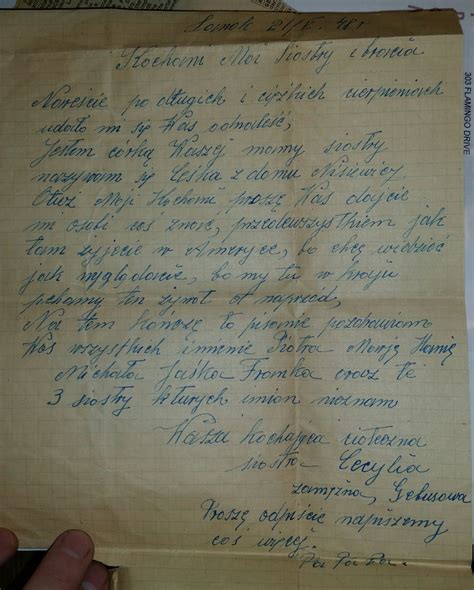 Sanok 21/V. 48 r
Kochani Moi Siostry i bracia
Nareście po długich i ciężkich cierpieniach
udało mi się Was odnaleść,
Jestem córką Waszej mamy siostry
nazywam się Ceśka z domu
Otuż Moji Kochani proszę Was dajcie
mi osobi coś znać, przedewszystkiem jak
tam żyjecie w Ameryce, bo chcę wiedzieć
jak wyglądacie, bo my tu w kraju
pchamy ten żywot naprzód,
Na tem kończę to pisanie pozdrawiam
Was wszystkich imienie Piotra Marją Hanię
Michała Jaśka Franka oraz te
3 siostry których imion nieznam
Wasza kochająca cioteczna
siostra Cecylia
zamężna, Gebusowa
Proszę odpiście napiszemy
coś więcej.
Pa Pa Pa.
303 FLAMINGO DRIVE